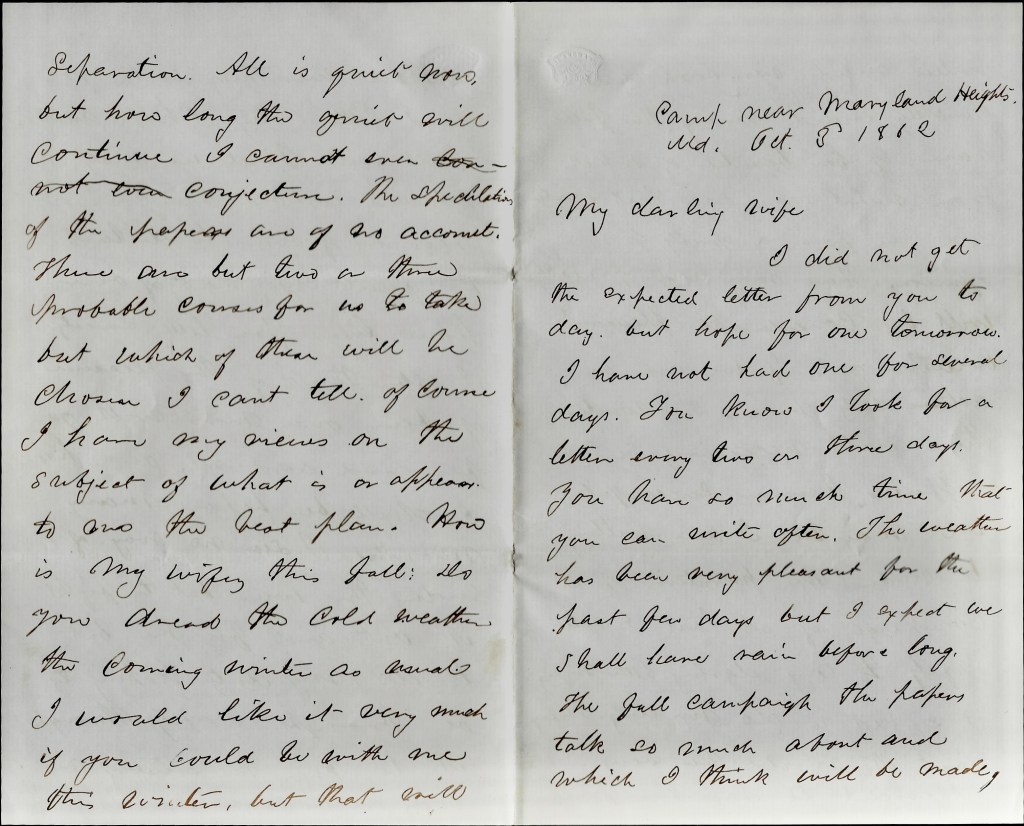 Camp near Maryland Heights.
Md. Oct. 8 1862
My darling wife
I did not get
the expected letter from you to
day. but hope for one tomorrow.
I have not had one for several
days. You know I look for a
letter every two or three days.
You have so much time that
you can write often. The weather
has been very pleasant for the
past few days but I expect we
shall have rain before long.
The fall campaign the papers
talk so much about and
which I think will be made,
Separation. All is quiet now,
but how long the quiet will
continue I cannot even con-
not even conjecture. The speculations
of the papers are of no account.
There are but two or three
probable courses for us to take
but which of these will be
chosen I cant tell. of course
I have my views on the
subject of what is or appears
to me the best plan. How
is my wifey this fall: Do
you dread the cold weather
the coming winter as usual
I would like it very much
if you could be with me
this winter, but that will